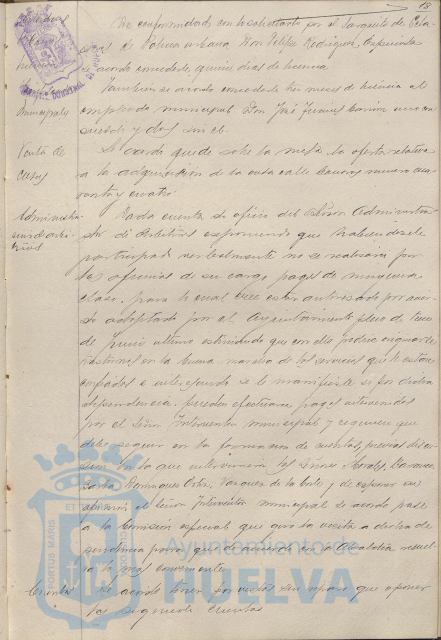 18
De conformidad con lo solicitado por el Sargento de Cela-
dores de Policia urbana Don Felipe Rodriguez,
se acordó concederle quince dias de licencia
Tambien se acordó concederle tres meses de licencia al
Municipales
empleado municipal Don José Jimenez
y dos sin el.
Venta de
casas
Se acordó quede sobre la mesa la oferta relativa
a la adquisicion de la casa calle numero cua-
renta y cuatro.
Administra-
cion de arbi-
trios
Dada cuenta de oficio del Señor Administra-
dor de Arbitrios exponiendo que habiendosele
participado verbalmente no se realizara por
las oficinas de su cargo pagos de ninguna
clase, para lo cual cree estar autorizado por acuer-
do adoptado por el Ayuntamiento pleno de trece
de Junio ultimo estimando que con ello podria
trastornos en la buena marcha de los servicios que le estan
confiados e interesando se le manifieste si por dicha
dependencia pueden efectuarse pagos intervenidos
por el Señor Interventor municipal y requisitos que
debe seguir en la formacion de cuentas, previa discu-
sion en la que intervinieron los Señores Morales,
Dominguez Vazquez de la Corte y de esperar
el Señor Interventor municipal se acordó pase
a la Comision especial que giró la visita a dicha de-
pendencia para que de acuerdo con la Alcaldia resuel-
va lo mas conveniente.
Cuentas
Se acordó tener por vistas sin reparo que oponer
las siguientes cuentas
PORTUS MARIS
ET
Ayuntamiento de
HUELVA